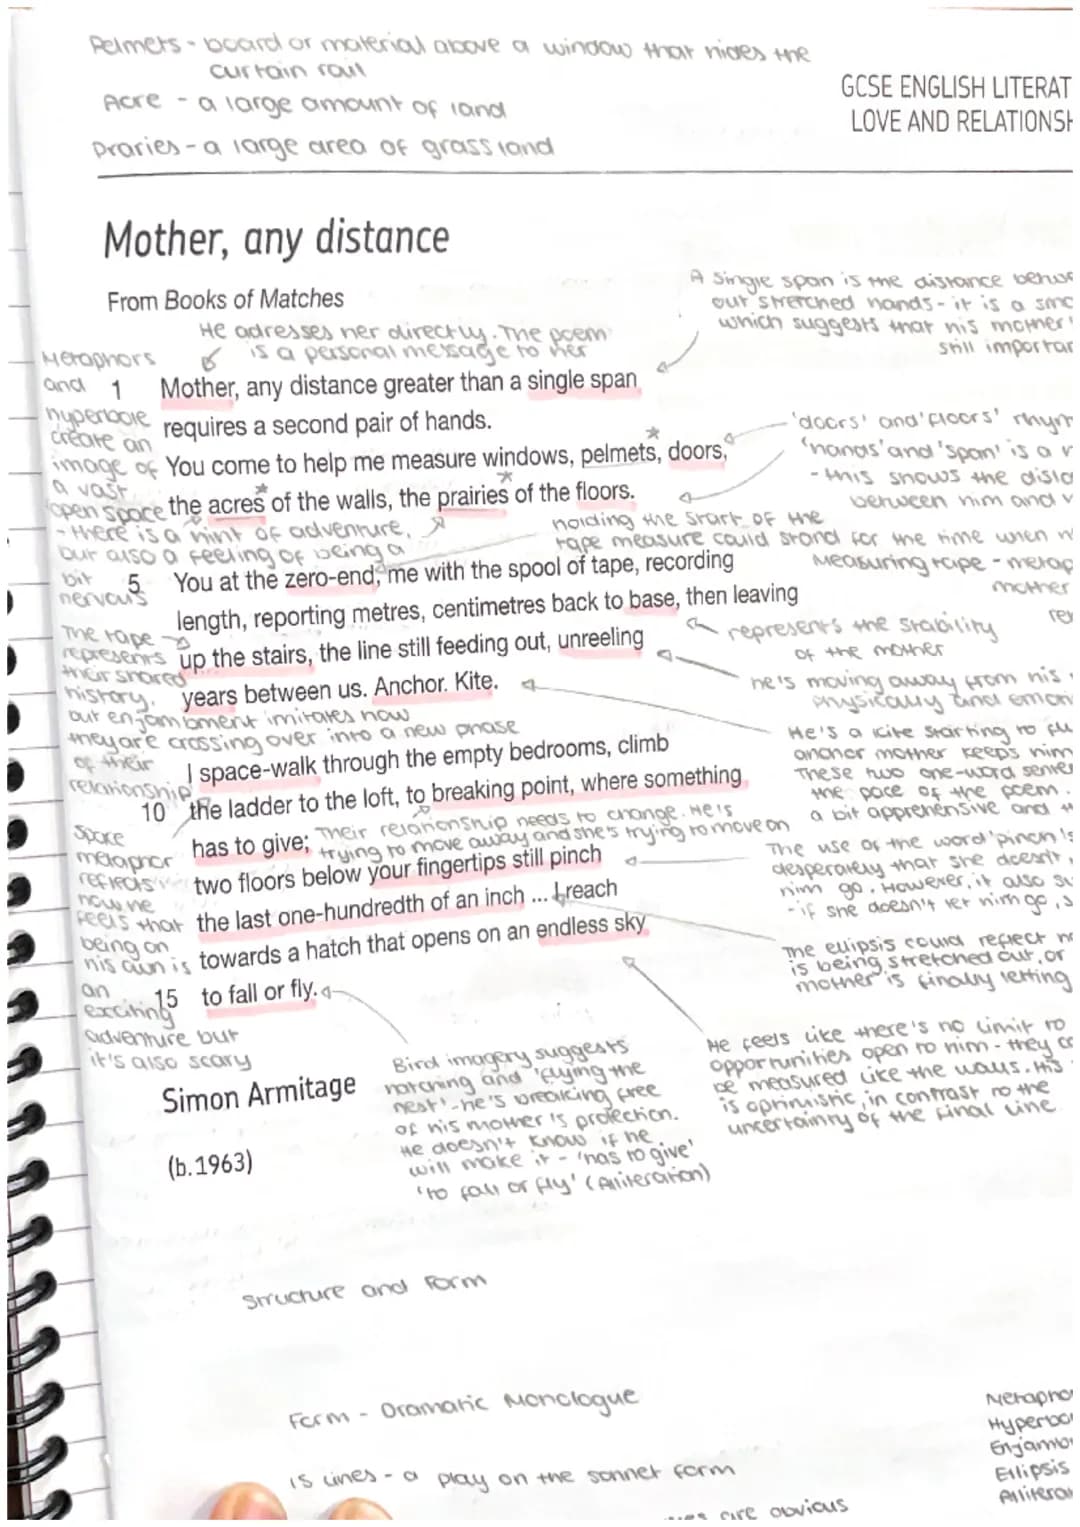 Pelmets - board or material above a window that hides the
curtain rail
Acre - a large amount of land
Praries - a large area of grassland
GCSE ENGLISH LITERAT
LOVE AND RELATIONSH
Mother, any distance
From Books of Matches
He adresses her directly. The poem
is a personal message to her
A single span is the distance betwe
out stretched hands - it is a sma
which suggests that his mother
still importan
Metaphors
and
hyperbole
create an
image of
a vast
open space
- there is a hint of adventure,
but also a feeling of being a
bit
nervous
1 Mother, any distance greater than a single span
requires a second pair of hands.
You come to help me measure windows, pelmets, doors,
the acres of the walls, the prairies of the floors.
'doors' and 'floors' rhym
'hands' and 'span' is a
- this shows the dista
between him and
holding the start of the
tape measure could stand for the time when
Measuring tape - metap
mother
5 You at the zero-end, me with the spool of tape, recording
length, reporting metres, centimetres back to base, then leaving
up the stairs, the line still feeding out, unreeling
years between us. Anchor. Kite.
represents the stability
of the mother
The tape
represents
their shared
history,
but enjambment imitates how
they are crossing over into a new phase
of their
relationship
he's moving away from his
physically and emoti
He's a kite starting to
anchor mother keeps him
These two one-word senten
the pace of the poem.
a bit apprehensive and
I space-walk through the empty bedrooms, climb
10 the ladder to the loft, to breaking point, where something
has to give;
Their relationship needs to change. He's
trying to move away and she's trying to move on
two floors below your fingertips still pinch
the last one-hundredth of an inch ... I reach
towards a hatch that opens on an endless sky
15 to fall or fly.
Space
metaphor
reflects
how he
feels that
being on
his own is
an
exciting
adventure but
it's also scary
The use of the word 'pinch'
desperately that she doesn't
him go. However, it also
- if she doesn't let him go,
The ellipsis could reflect
is being stretched out, or
mother is finally letting
Simon Armitage
(b.1963)
Bird imagery suggests
hatching and 'flying the
nest' - he's breaking free
of his mother's protection.
He doesn't know if he
will make it - 'has to give'
'to fall or fly' (Alliteration)
He feels like there's no limit to
opportunities open to him - they
be measured like the walls. His
is optimistic, in contrast to the
uncertainty of the final line
Structure and Form
Form - Dramatic Monologue
15 lines - a play on the sonnet form
are obvious
Metapho
Hyperbo
Enjamb
Ellipsis
Alliterat